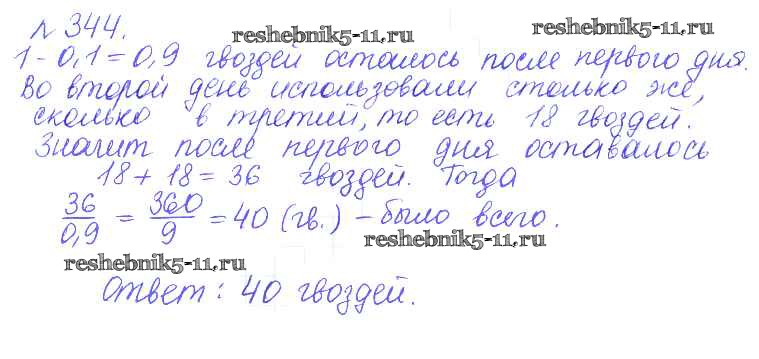 № 344.
reshebnik5-11.ru
reshebnik5-11.ru
1 - 0,1 = 0,9 гвоздей осталось после первого дня.
Во второй день использовали столько же,
сколько в третий, то есть 18 гвоздей.
Значит после первого дня оставалось
18 + 18 = 36 гвоздей. Тогда
36/0,9 = 360/9 = 40 (гв.) - было всего.
reshebnik5-11.ru
reshebnik5-11.ru
Ответ: 40 гвоздей.